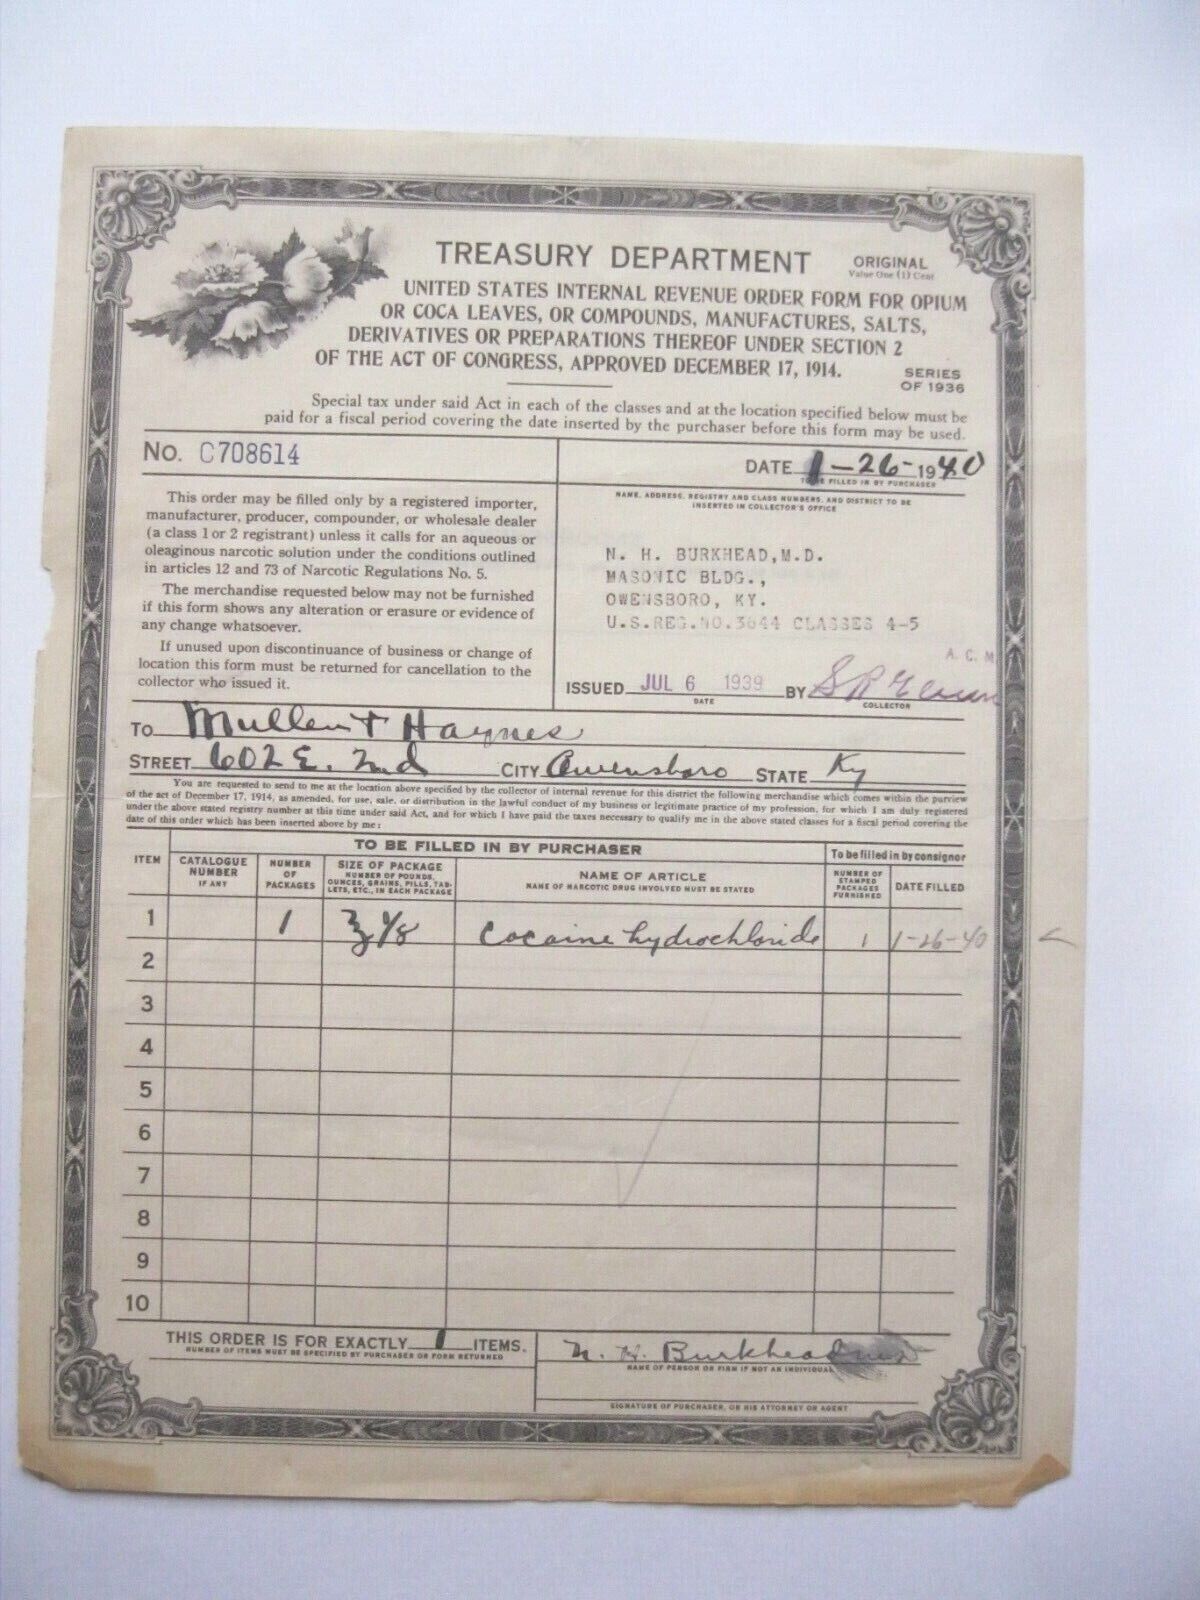 TREASURY DEPARTMENT
ORIGINAL
Value One (1) Cent
UNITED STATES INTERNAL REVENUE ORDER FORM FOR OPIUM
OR COCA LEAVES, OR COMPOUNDS, MANUFACTURES, SALTS,
DERIVATIVES OR PREPARATIONS THEREOF UNDER SECTION 2
OF THE ACT OF CONGRESS, APPROVED DECEMBER 17, 1914.
SERIES
OF 1936
Special tax under said Act in each of the classes and at the location specified below must be
paid for a fiscal period covering the date inserted by the purchaser before this form may be used.
No. C708614
DATE 1-26-1940
TO BE FILLED IN BY PURCHASER
This order may be filled only by a registered importer,
manufacturer, producer, compounder, or wholesale dealer
(a class 1 or 2 registrant) unless it calls for an aqueous or
oleaginous narcotic solution under the conditions outlined
in articles 12 and 73 of Narcotic Regulations No. 5.
The merchandise requested below may not be furnished
if this form shows any alteration or erasure or evidence of
any change whatsoever.
If unused upon discontinuance of business or change of
location this form must be returned for cancellation to the
collector who issued it.
NAME, ADDRESS, REGISTRY AND CLASS NUMBERS, AND DISTRICT TO BE
INSERTED IN COLLECTOR'S OFFICE
N. H. BURKHEAD, M.D.
MASONIC BLDG.,
OWENSBORO, KY.
U.S.REG.NO.3644 CLASSES 4-5
A. C. M
ISSUED JUL 6 1939 BY
DATE
COLLECTOR
TO Mullen & Haynes
STREET 602 E. 2nd CITY Owensboro STATE Ky
You are requested to send to me at the location above specified by the collector of internal revenue for this district the following merchandise which comes within the purview
of the act of December 17, 1914, as amended, for use, sale, or distribution in the lawful conduct of my business or legitimate practice of my profession, for which I am duly registered
under the above stated registry number at this time under said Act, and for which I have paid the taxes necessary to qualify me in the above stated classes for a fiscal period covering the
date of this order which has been inserted above by me:
TO BE FILLED IN BY PURCHASER
To be filled in by consignor
ITEM
CATALOGUE
NUMBER
IF ANY
NUMBER
OF
PACKAGES
SIZE OF PACKAGE
NUMBER OF POUNDS,
OUNCES, GRAINS, PILLS, TAB-
LETS, ETC., IN EACH PACKAGE
NAME OF ARTICLE
NAME OF NARCOTIC DRUG INVOLVED MUST BE STATED
NUMBER OF
STAMPED
PACKAGES
FURNISHED
DATE FILLED
1 1 ℥ 1/8 Cocaine hydrochloride 1 1-26-40
2
3
4
5
6
7
8
9
10
THIS ORDER IS FOR EXACTLY 1 ITEMS.
NUMBER OF ITEMS MUST BE SPECIFIED BY PURCHASER OR FORM RETURNED
N. H. Burkhead
NAME OF PERSON OR FIRM IF NOT AN INDIVIDUAL
SIGNATURE OF PURCHASER, OR HIS ATTORNEY OR AGENT